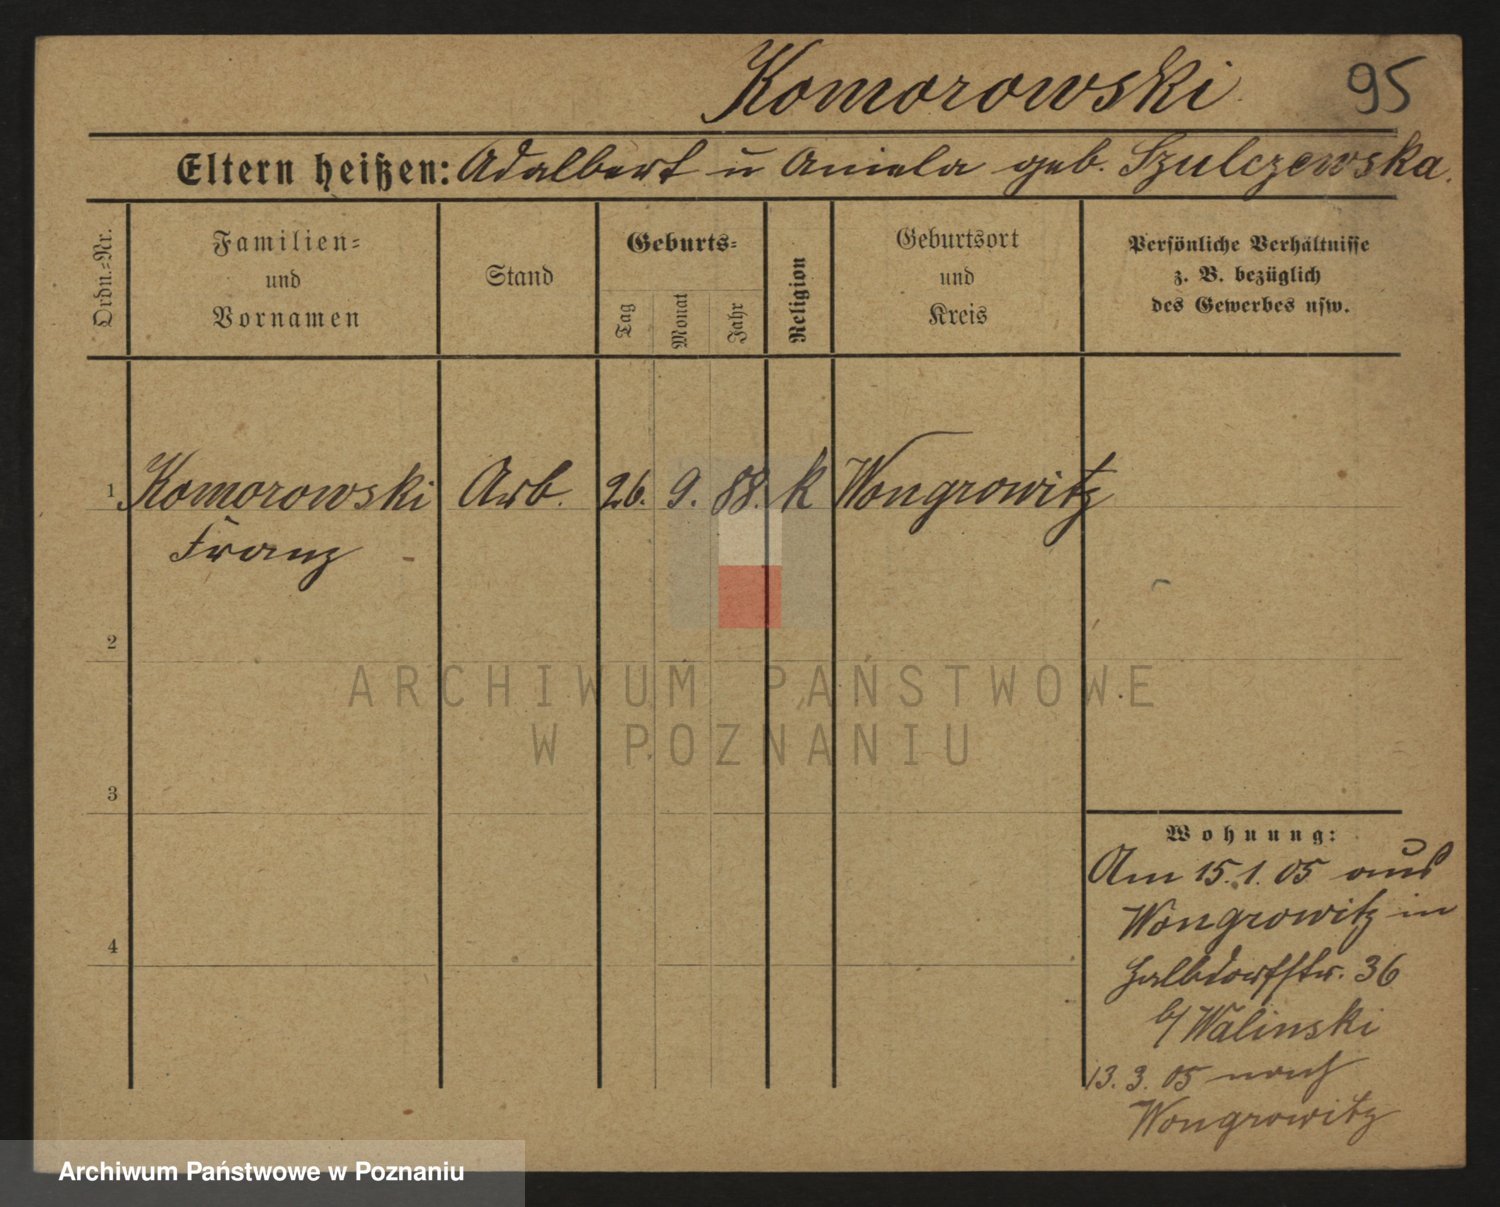 Komorowski 95
Eltern heißen: Adalbert u Aniela geb. Szulczewska.
Ordn.=Nr.
Familien=
und
Vornamen
Stand
Geburts=
Tag
Monat
Jahr
Religion
Geburtsort
und
Kreis
Persönliche Verhältnisse
z. B. bezüglich
des Gewerbes usw.
1 Komorowski Arb. 26. 9. 88. k Wongrowitz
Franz
2
ARCHIWUM PAŃSTWOWE
W POZNANIU
3
4
Wohnung:
Am 15.1.05 aus
Wongrowitz in
Halbdorfstr. 36
b/ Walinski
13. 3. 05 nach
Wongrowitz
Archiwum Państwowe w Poznaniu